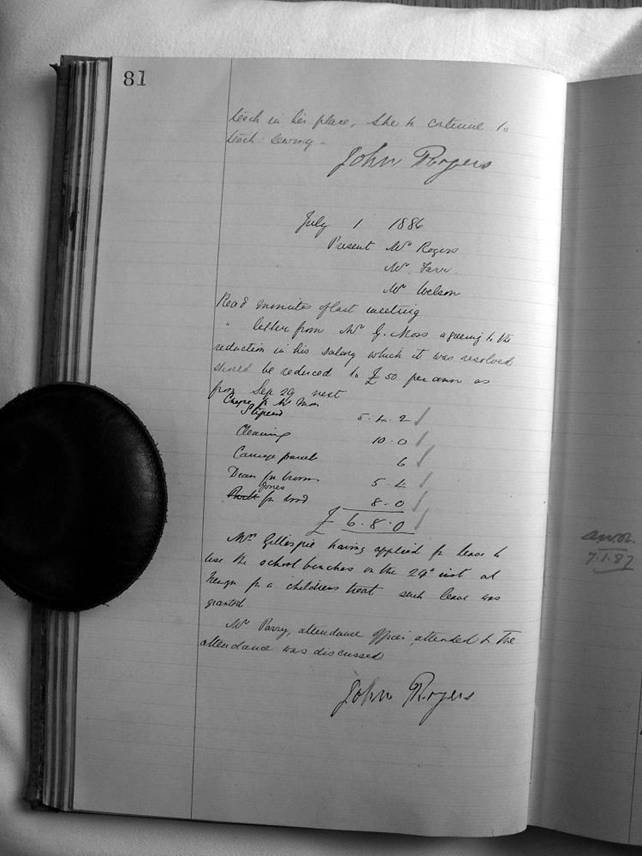 81
teach in his place, she to continue to
teach sewing -
John Rogers
July 1 1886
Present Mr Rogers
Mr Farr
Mr Welson
Read minute of last meeting
" letter from Mr G. Moss agreeing to the
reduction in his salary which it was resolved
should be reduced to £50 per ann as
from Sep 29 next
Cheque for Mr Moss
Stipend 5. 4. 2 ✓
Cleaning 10. 0 ✓
Carriage parcel 6 ✓
Dean for brooms 5. 4 ✓
Jones
for wood 8. 0 ✓
£ 6. 8. 0 ✓
Mrs Gillespie having applied for leave to
use the school benches on the 29th inst at
for a childrens treat such leave was
granted
Mr Parry, attendance officer, attended & the
attendance was discussed
John Rogers
7.1.87